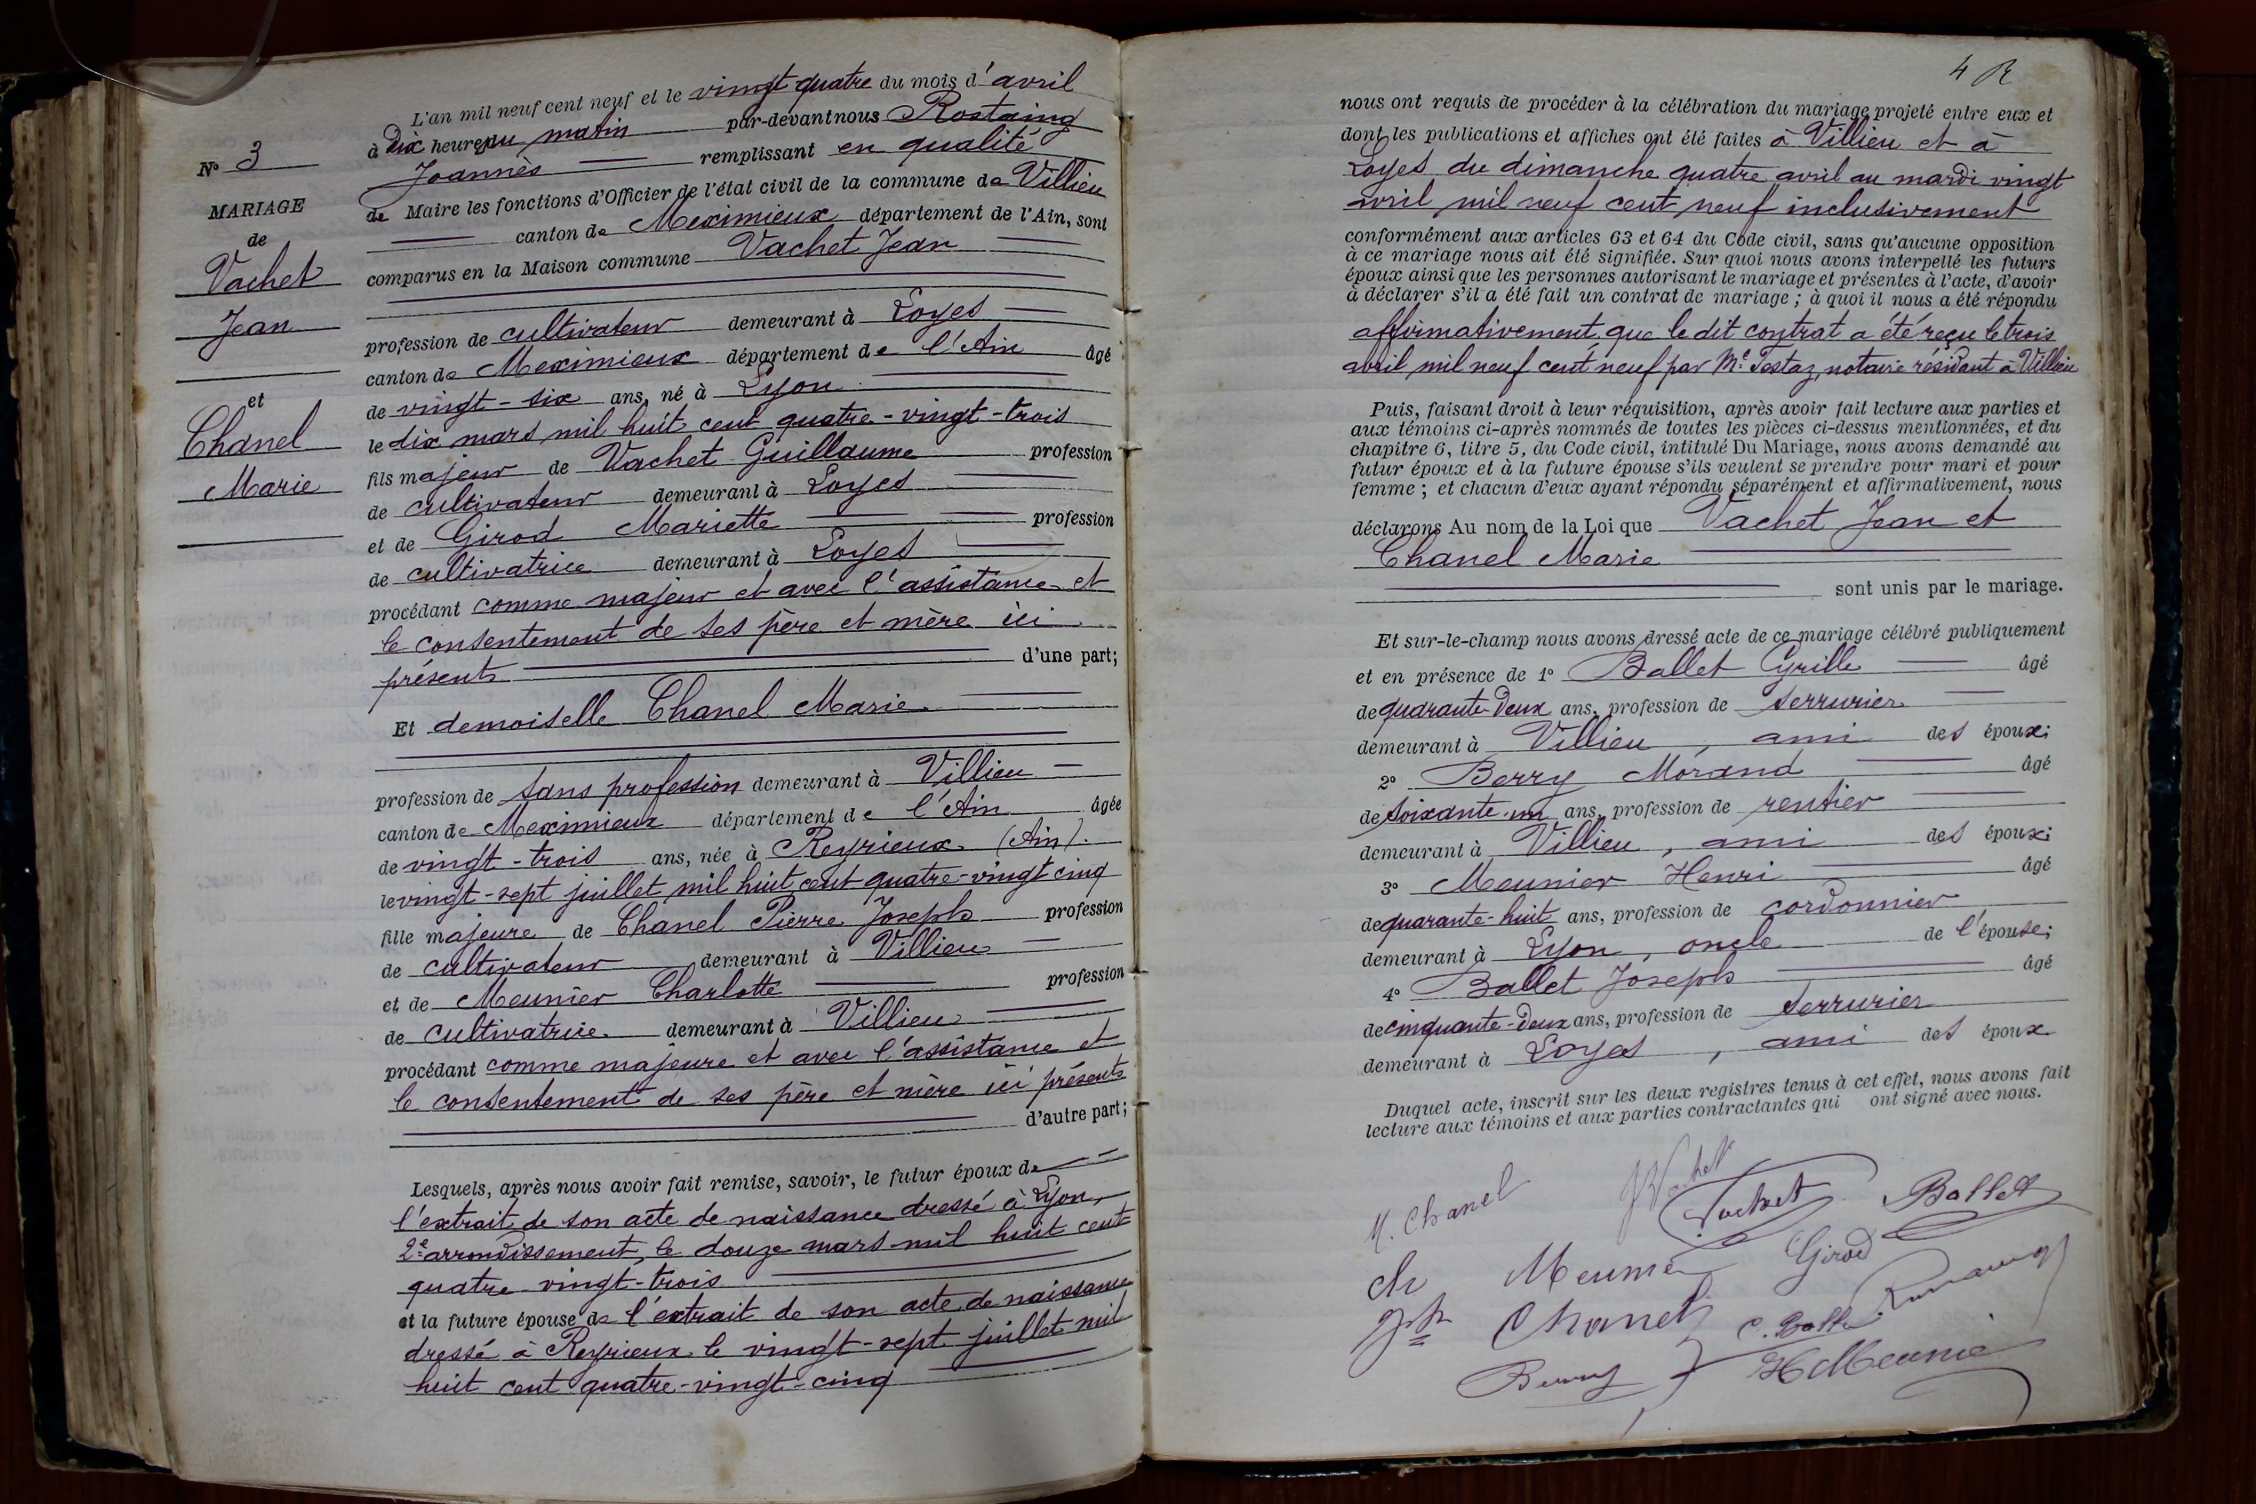 L'an mil neuf cent neuf et le vingt quatre du mois d'avril
à Dix heures du matin par-devant nous Rostaing
Joannès remplissant en qualité
de Maire les fonctions d'Officier de l'état civil de la commune de Villieu
canton de Meximieux département de l'Ain, sont
comparus en la Maison commune Vachet Jean
profession de cultivateur demeurant à Loyes
canton de Meximieux département de l'Ain âgé
de vingt-six ans, né à Lyon
le dix mars mil huit cent quatre-vingt-trois
fils majeur de Vachet Guillaume profession
de cultivateur demeurant à Loyes
et de Girod Mariette profession
de cultivatrice demeurant à Loyes
procédant comme majeur et avec l'assistance et
le consentement de ses père et mère ici
présents d'une part;
Et demoiselle Chanel Marie
profession de sans profession demeurant à Villieu
canton de Meximieux département de l'Ain âgée
de vingt-trois ans, née à Reyrieux (Ain).
le vingt-sept juillet mil huit cent quatre-vingt cinq
fille majeure de Chanel Pierre Joseph profession
de cultivateur demeurant à Villieu
et de Meunier Charlotte profession
de cultivatrice demeurant à Villieu
procédant comme majeure et avec l'assistance et
le consentement de ses père et mère ici présents
d'autre part;
Lesquels, après nous avoir fait remise, savoir, le futur époux de
l'extrait de son acte de naissance dressé à Lyon,
2e arrondissement, le douze mars mil huit cent
quatre-vingt-trois
et la future épouse de l'extrait de son acte de naissance
dressé à Reyrieux le vingt-sept juillet mil
huit cent quatre-vingt-cinq
No 3
MARIAGE
de
Vachet
Jean
et
Chanel
Marie
4 R
nous ont requis de procéder à la célébration du mariage projeté entre eux et
dont les publications et affiches ont été faites à Villieu et à
Loyes du dimanche quatre avril au mardi vingt
avril mil neuf cent neuf inclusivement
conformément aux articles 63 et 64 du Code civil, sans qu'aucune opposition
à ce mariage nous ait été signifiée. Sur quoi nous avons interpellé les futurs
époux ainsi que les personnes autorisant le mariage et présentes à l'acte, d'avoir
à déclarer s'il a été fait un contrat de mariage ; à quoi il nous a été répondu
affirmativement, que le dit contrat a été reçu le trois
avril mil neuf cent neuf par Me Testaz, notaire résidant à Villieu
Puis, faisant droit à leur réquisition, après avoir fait lecture aux parties et
aux témoins ci-après nommés de toutes les pièces ci-dessus mentionnées, et du
chapitre 6, titre 5, du Code civil, intitulé Du Mariage, nous avons demandé au
futur époux et à la future épouse s'ils veulent se prendre pour mari et pour
femme ; et chacun d'eux ayant répondu séparément et affirmativement, nous
déclarons Au nom de la Loi que Vachet Jean et
Chanel Marie
sont unis par le mariage.
Et sur-le-champ nous avons dressé acte de ce mariage célébré publiquement
et en présence de 1° Ballet Cyrille âgé
de quarante-Deux ans, profession de serrurier
demeurant à Villieu, ami des époux;
2° Berry Morand âgé
de soixante-un ans, profession de rentier
demeurant à Villieu, ami des époux;
3° Meunier Henri âgé
de quarante-huit ans, profession de cordonnier
demeurant à Lyon, oncle de l'épouse;
4° Ballet Joseph âgé
de cinquante-Deux ans, profession de serrurier
demeurant à Loyes, ami des époux
Duquel acte, inscrit sur les deux registres tenus à cet effet, nous avons fait
lecture aux témoins et aux parties contractantes qui ont signé avec nous.
M. Chanel J Vachet Vachet Ballet
ch Meunier Girod
Jph Chanel C. Ballet
Berry H Meunier